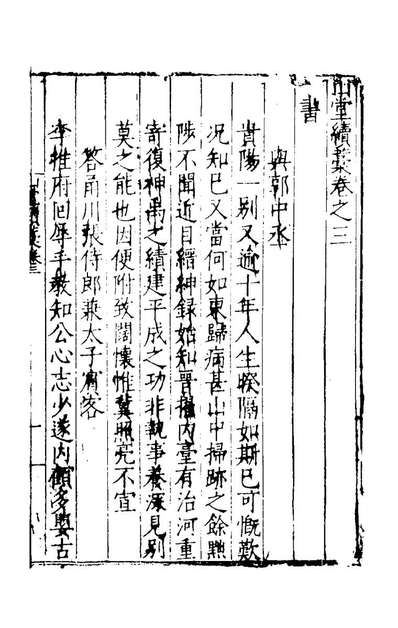 山堂續藁卷之三
書
與郭中丞
貴陽一別又逾十年人生暌隔如斯已可慨歎
況知己又當何如東歸病甚山中掃跡之餘黜
陟不聞近目縉神録始知晉擢内臺有治河重
寄復神禹之績建平成之功非執事養深見别
莫之能也因便附致闊懷惟冀照亮不宣
答甬川張侍郎兼太子賓客
李推府回辱手教知公心志少遂内顧多嬰古